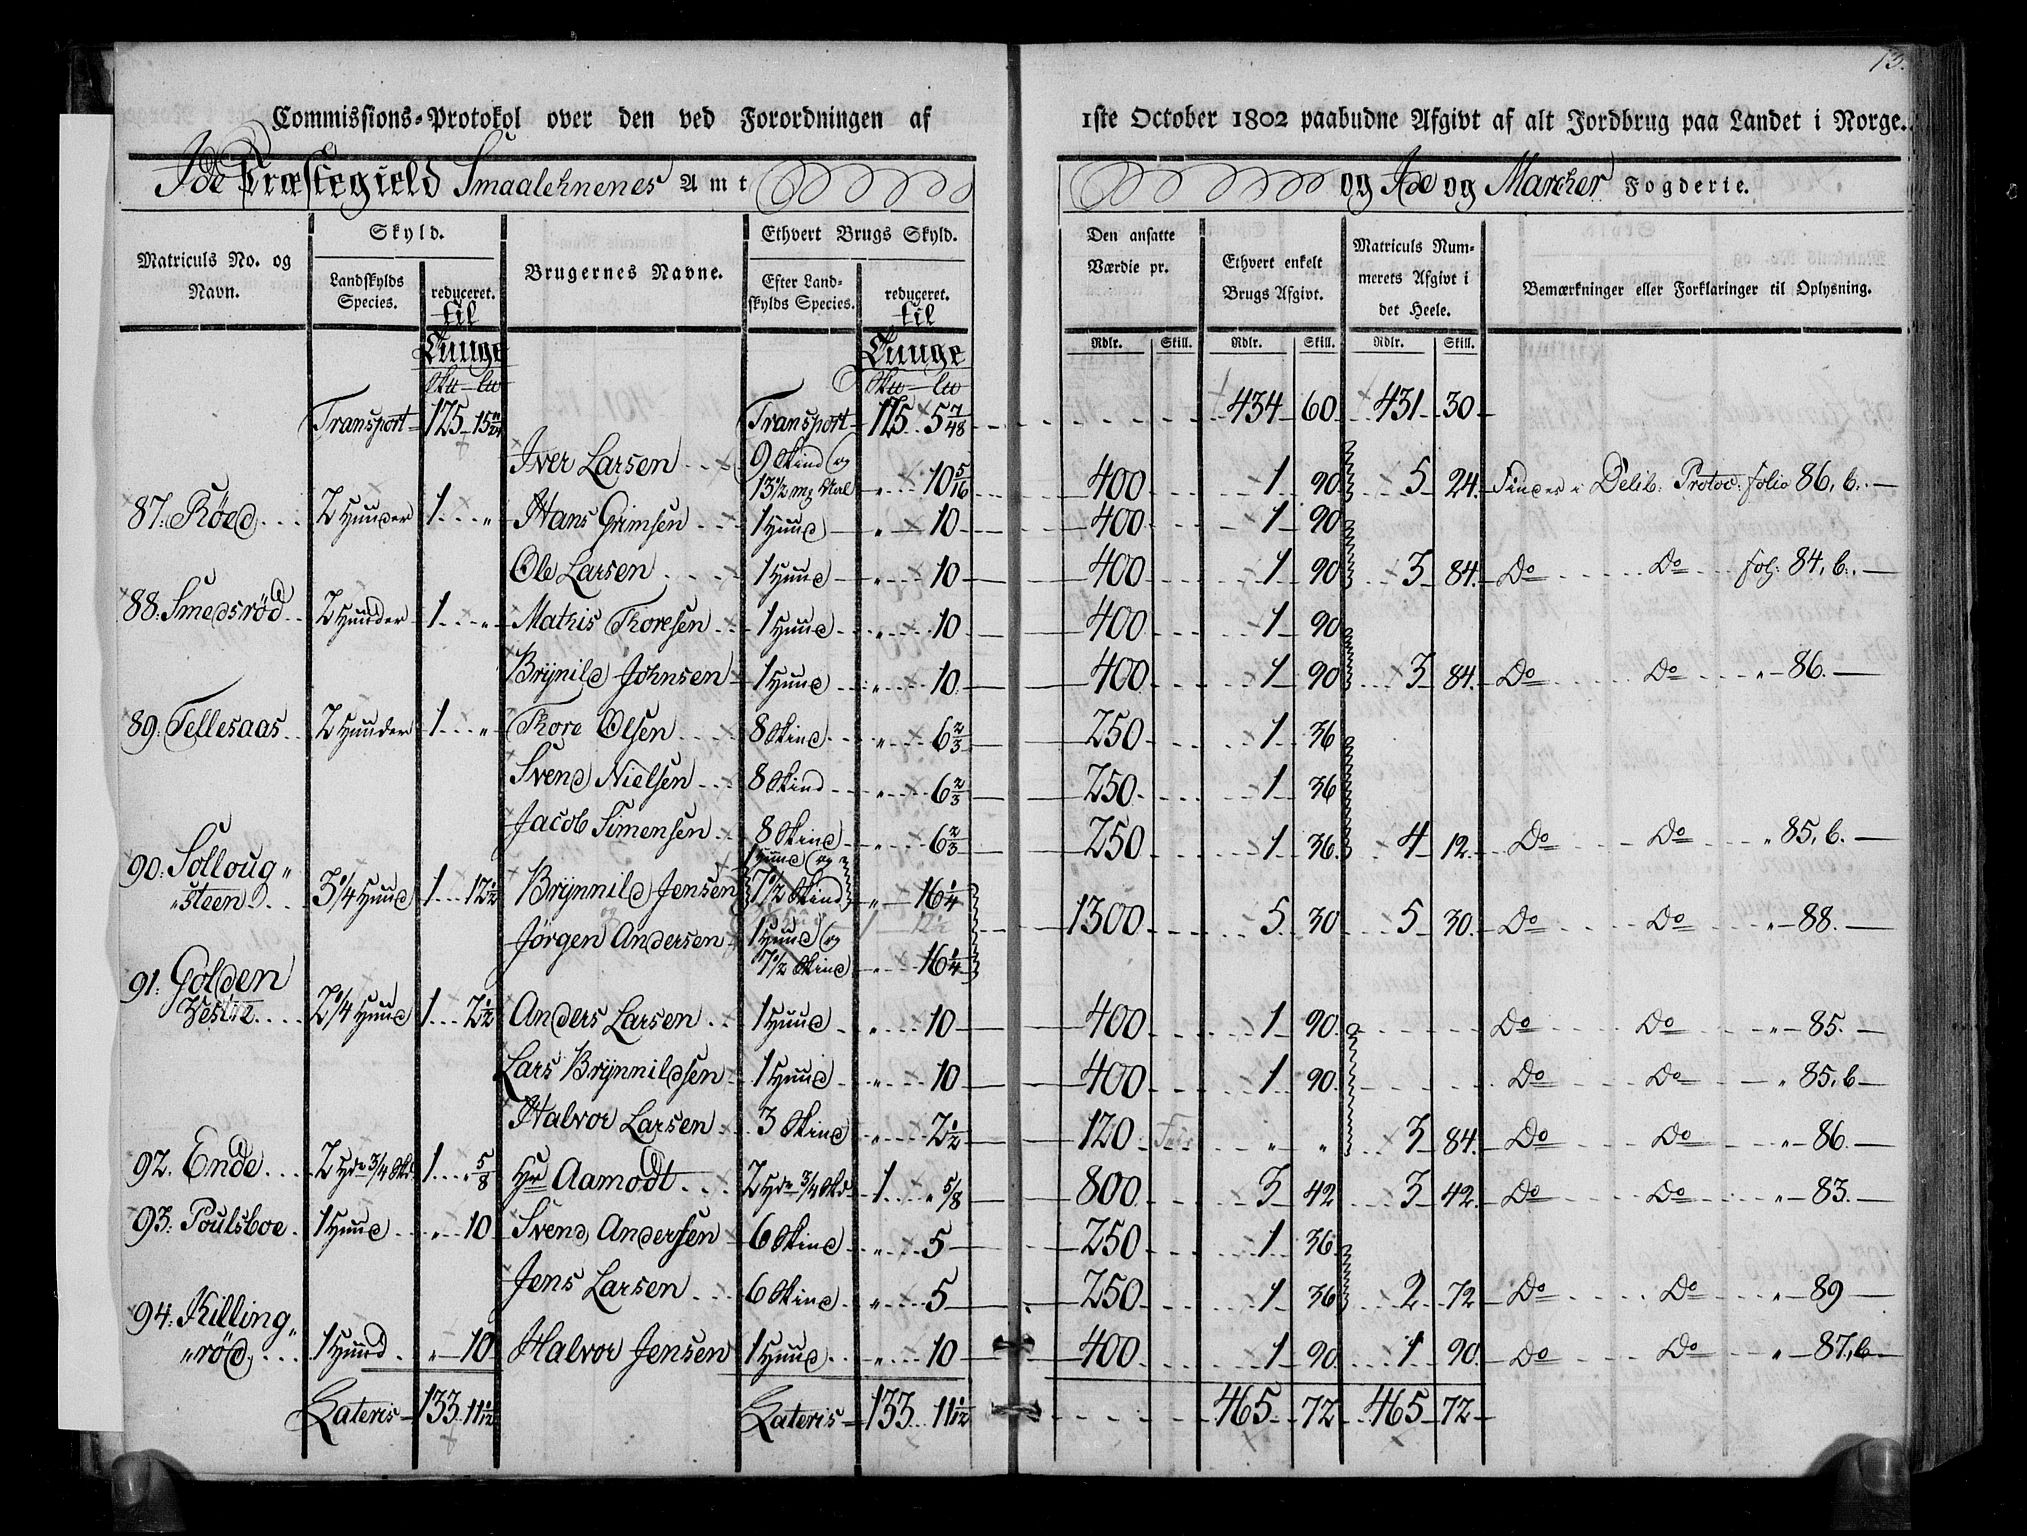 13.
Commissions-Protokol over den ved Forordningen af 1ste October 1802 paabudne Afgivt af alt Jordbrug paa Landet i Norge.
Ide Præstegield Smaalehnenes Amt og Ide og Marcker Fogderie.
Matriculs No. og Navn.
Skyld.
Landskylds Species.
reduceret. til Tunge
Brugernes Navne.
Ethvert Brugs Skyld.
Efter Landskylds Species.
reduceret. til Tunge
Den ansatte Værdie pr.
Ethvert enkelt Brugs Afgivt.
Matriculs Nummerets Afgivt i det Heele.
Bemærkninger eller Forklaringer til Oplysning.
Rdlr. Skill. Rdlr. Skill. Rdlr. Skill.
Transport 125 15 11/24 Transport 125 5 7/48 434 60 431 30
Iver Larsen 9 Skind og 13 1/2 mg Mal " 10 5/16 400 1 90 5 24 Findes i Delib: Protoc: folio 86, b.
87. Röed 2 Huuder 1 " Hans Grimsen 1 Huud " 10 400 1 90
Ole Larsen 1 Huud " 10 400 1 90 3 84 Do Do fol: 84, b.
88. Smedsröd 2 Huuder 1 " Mathis Thoresen 1 Huud " 10 400 1 90
Brÿnild Johnsen 1 Huud " 10 400 1 90 3 84 Do Do " 86.
89. Tellesaas 2 Huuder 1 " Thore Olsen 8 Skind " 6 2/3 250 1 36
Svend Nielsen 8 Skind " 6 2/3 250 1 36
Jacob Simensen 8 Skind " 6 2/3 250 1 36 4 12 Do Do " 85, b.
90. Solloug"
"steen 3 1/4 Huud 1 12 1/2 Brÿnnild Jensen 1 Huud og 7 1/2 Skind " 16 1/4 1300 5 30 5 30 Do Do " 88.
og
Jörgen Andersen 1 Huud og 7 1/2 Skind " 16 1/4
91. Golden
2 1/4 Huud 1 2 1/2 Anders Larsen 1 Huud " 10 400 1 90 Do Do " 85.
Lars Brÿnnildsen 1 Huud " 10 400 1 90 Do Do " 85, b
Halvor Larsen 3 Skind " 2 1/2 120 Frie " " 3 84 Do Do " 86.
92. Ende 2 Hdr 3/4 Skd 1 5/8 Hr Aamodt 2 Hdr 3/4 Skd 1 " 5/8 800 3 42 3 42 Do Do " 83.
93. Poulsboe 1 Huud " 10 Svend Andersen 6 Skind " 5 250 1 36
Jens Larsen 6 Skind " 5 250 1 36 2 72 Do Do " 89
94. Killing"
"röd 1 Huud " 10 Halvor Jensen 1 Huud " 10 400 1 90 1 90 Do Do " 87, b
Lateris 133 11 1/2 Lateris 133 11 1/2 465 72 465 72